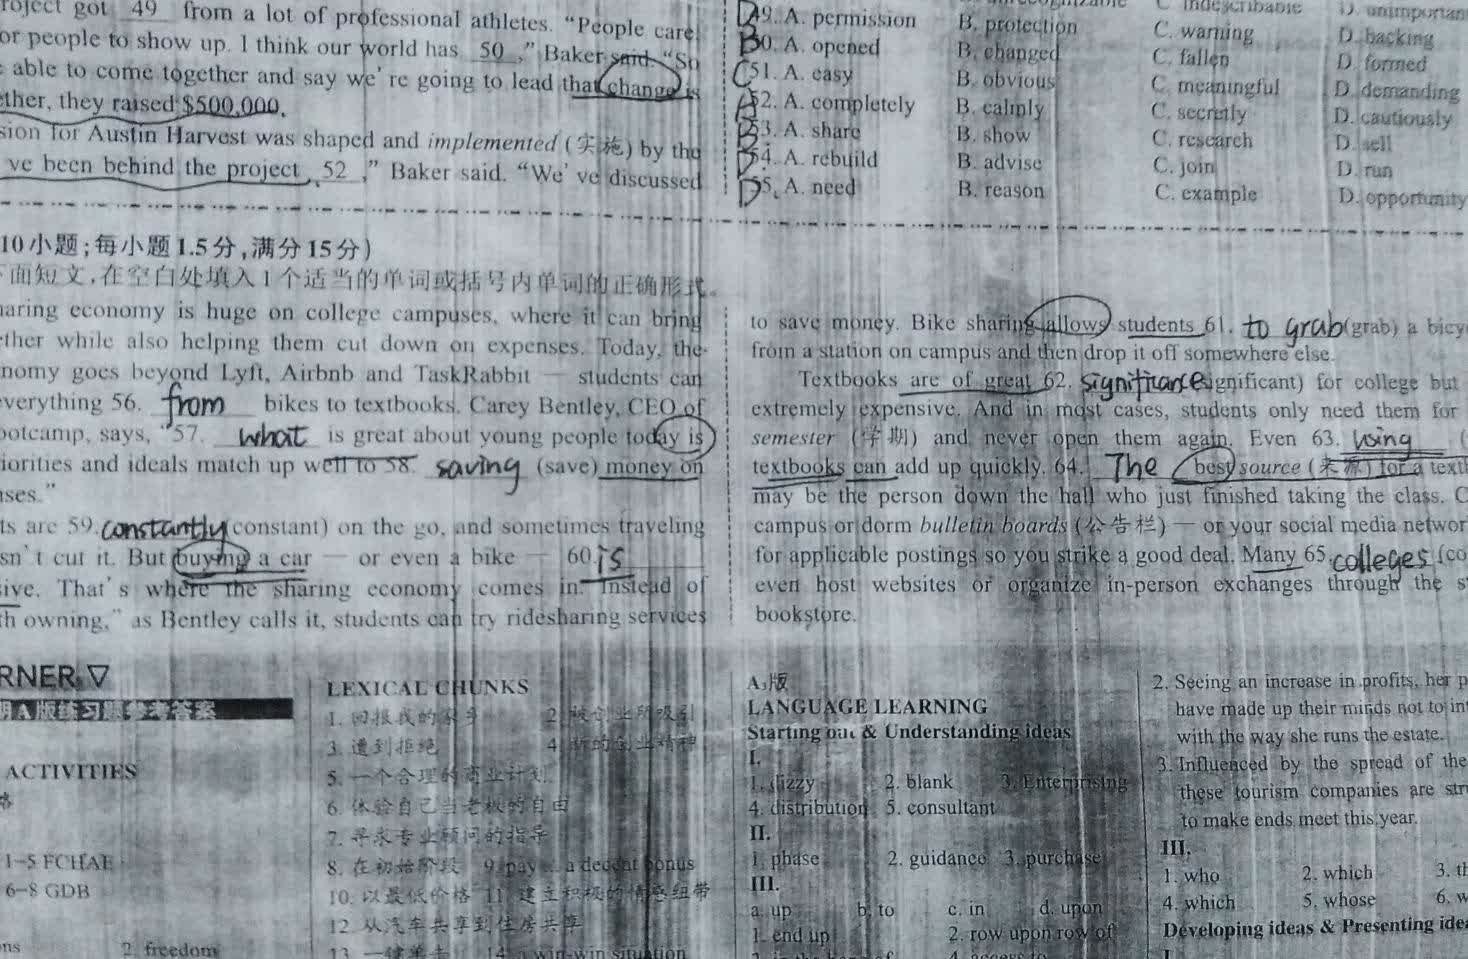 roject got 49 from a lot of professional athletes. “People care
or people to show up. I think our world has 50 ,” Baker said. “So
able to come together and say we’re going to lead that change is
ether, they raised $500,000.
sion for Austin Harvest was shaped and implemented (实施) by the
ve been behind the project 52 ,” Baker said. “We’ve discussed
D 49. A. permission B. protection C. warning D. backing
B 50. A. opened B. changed C. fallen D. formed
C 51. A. easy B. obvious C. meaningful D. demanding
A 52. A. completely B. calmly C. secretly D. cautiously
B 53. A. share B. show C. research D. sell
D 54. A. rebuild B. advise C. join D. run
D 55. A. need B. reason C. example D. opportunity
10小题;每小题1.5分,满分15分)
面短文,在空白处填入1个适当的单词或括号内单词的正确形式。
haring economy is huge on college campuses, where it can bring
ether while also helping them cut down on expenses. Today, the
nomy goes beyond Lyft, Airbnb and TaskRabbit — students can
everything 56. from bikes to textbooks. Carey Bentley, CEO of
ootcamp, says, “57. what is great about young people today is
iorities and ideals match up well to 58. saving (save) money on
nses.”
ts are 59. constantly (constant) on the go, and sometimes traveling
sn’t cut it. But buying a car — or even a bike — 60. is
sive. That’s where the sharing economy comes in. Instead of
h owning,” as Bentley calls it, students can try ridesharing services
to save money. Bike sharing allows students 61. to grab (grab) a bicy
from a station on campus and then drop it off somewhere else.
Textbooks are of great 62. significance significant) for college but
extremely expensive. And in most cases, students only need them for
semester (学期) and never open them again. Even 63. using (
textbooks can add up quickly. 64. The best source (来源) for a text
may be the person down the hall who just finished taking the class. C
campus or dorm bulletin boards (公告栏) — or your social media networ
for applicable postings so you strike a good deal. Many 65. colleges (co
even host websites or organize in-person exchanges through the s
bookstore.
RNER ▽
ACTIVITIES
1-5 FCHAE
6-8 GDB
2. freedom
LEXICAL CHUNKS
1. 回报我的家乡
3. 遭到拒绝
5. 一个合理的商业计划
6. 体验自己当老板的自由
7. 寻求专业顾问的指导
8. 在初始阶段 9. pay ... a decent bonus
10. 以最低价格 11. 建立积极的情感纽带
12. 从汽车共享到住房共享
14. a win-win situation
A版
LANGUAGE LEARNING
Starting out & Understanding ideas
I.
1. dizzy 2. blank 3. Enterprising
4. distribution 5. consultant
II.
1. phase 2. guidance 3. purchase
III.
a. up b. to c. in d. upon
1. end up 2. row upon row of
2. Seeing an increase in profits, her p
have made up their minds not to int
with the way she runs the estate.
3. Influenced by the spread of the
these tourism companies are stru
to make ends meet this year.
III.
1. who 2. which 3. th
4. which 5. whose 6. w
Developing ideas & Presenting idea
I.